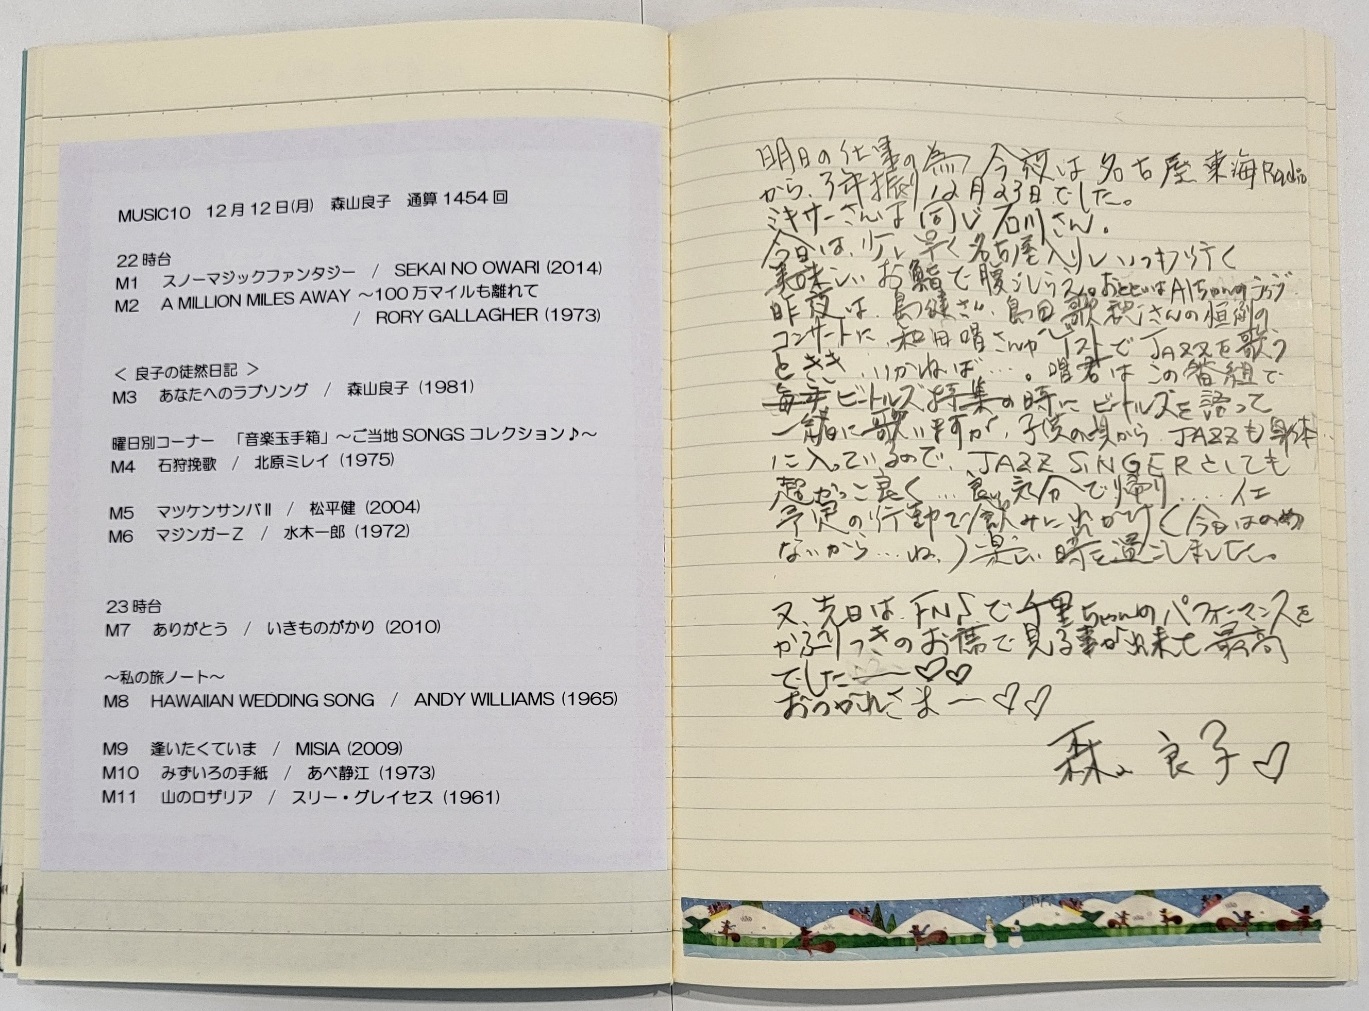 MUSIC10 12月12日(月) 森山良子 通算1454回
22時台
M1 スノーマジックファンタジー / SEKAI NO OWARI (2014)
M2 A MILLION MILES AWAY ～100万マイルも離れて
/ RORY GALLAGHER (1973)
＜ 良子の徒然日記 ＞
M3 あなたへのラブソング / 森山良子 (1981)
曜日別コーナー 「音楽玉手箱」～ご当地SONGSコレクション♪～
M4 石狩挽歌 / 北原ミレイ (1975)
M5 マツケンサンバⅡ / 松平健 (2004)
M6 マジンガーZ / 水木一郎 (1972)
23時台
M7 ありがとう / いきものがかり (2010)
～私の旅ノート～
M8 HAWAIIAN WEDDING SONG / ANDY WILLIAMS (1965)
M9 逢いたくていま / MISIA (2009)
M10 みずいろの手紙 / あべ静江 (1973)
M11 山のロザリア / スリー・グレイセス (1961)
明日の仕事の為 今夜は名古屋東海Radio
から、3年振り12月23日でした。
ミキサーさんは同じ石川さん。
今日は、少し早く名古屋入りしいつも行く
美味しいお鮨で腹ごしらえ。おとといはAIちゃんのライブ
昨夜は、島健さん、島田歌穂さんの恒例の
コンサートに 和田唱さんがゲストでJAZZを歌う
ときき、いかねば…。唱君はこの番組で
毎年ビートルズ特集の時にビートルズを語って
一緒に歌いますが、子供の頃から JAZZも身体
に入っているので、JAZZ SINGERとしても
超かっこ良く…良い気分で帰り.....
予定の行動で飲みに出かけ (今日はのめ
ないから…ね、) 楽しい時を過ごしました。
又、先日は、FNSで千里ちゃんのパフォーマンスを
かぶりつきのお席で見る事が出来て最高
でしたー♡♡
おつかれさまー♡♡
森山良子♡